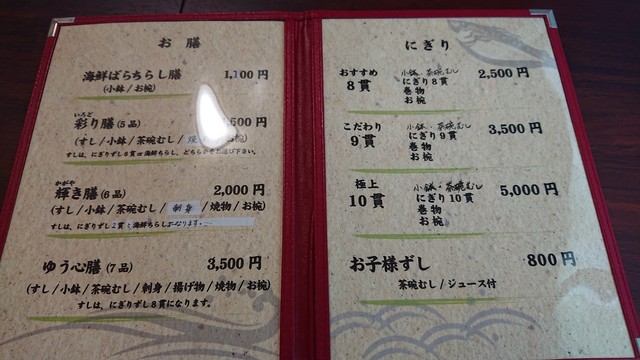 お膳
海鮮ばらちらし膳 1,100円
(小鉢/お椀)
いろど
彩り膳(5品) 500円
(すし/小鉢/茶碗むし/
すしは、にぎりずし
かがや
輝き膳(6品) 2,000円
(すし/小鉢/茶碗むし/刺身/焼物/お椀)
すしは、にぎりずし
ゆう心膳(7品) 3,500円
(すし/小鉢/茶碗むし/刺身/揚げ物/焼物/お椀)
すしは、にぎりずし8貫になります。
にぎり
おすすめ
8貫
小鉢・茶碗むし
にぎり8貫
巻物
お椀
2,500円
こだわり
9貫
小鉢・茶碗むし
にぎり9貫
巻物
お椀
3,500円
極上
10貫
小鉢・茶碗むし
にぎり10貫
巻物
お椀
5,000円
お子様ずし 800円
茶碗むし/ジュース付